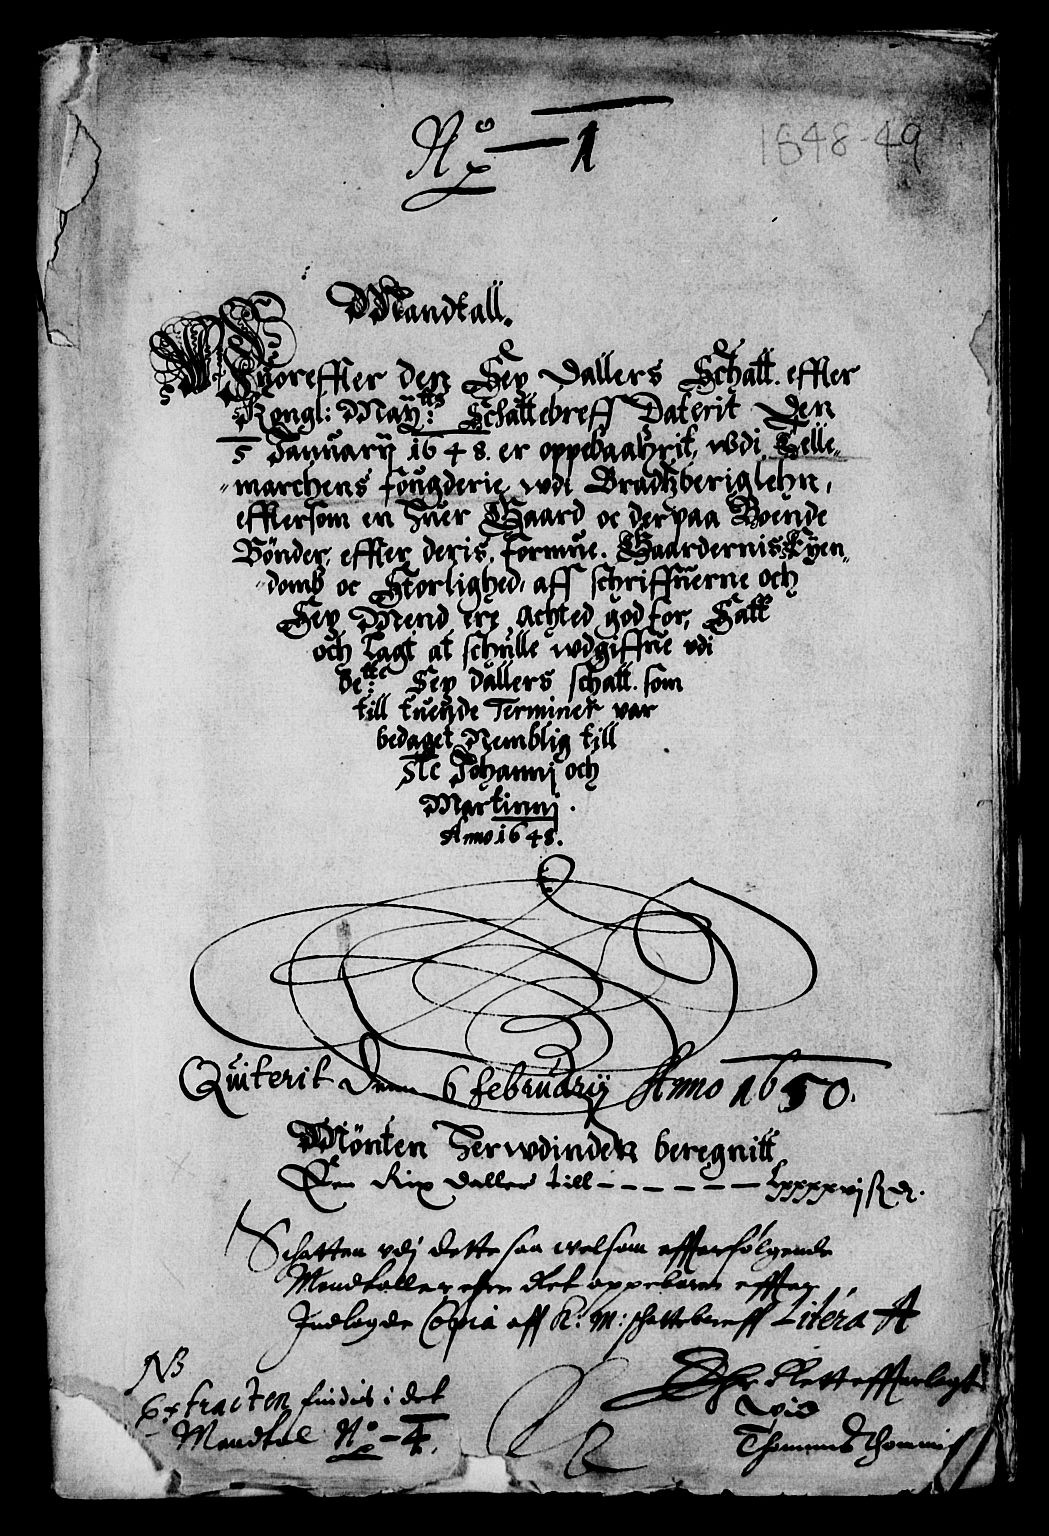 No 1
1648-49
Mandtall.
Huoreffter den Sex Dallers Schatt. effter
Kongl: Maytts: Schattebreff Daterit Den
5 Januarij 1648. er oppebaahrit, wdi Telle,
marchens fougderie wdi Bradtzberiglehn,
efftersom en huer Gaard oc der paa Boende
Bønder, effter deris, formue. Gaardernis Eyen,
domb oc Storlighed, aff schriffuerne och
Sex Mend ere Achted god for, Satt
och Lagt at schulle wdgiffue vdi
dette: Sex dallers schatt. som
till tuende Terminer var
bedaget Nemblig till
Ste Johannj och
Martinnj.
Anno 1648.
Quiterit Denn 6 februarij Anno 1650.
Mønten herwdinden beregnitt
Een Rix daller till – – – – – – Lxxxxvj s dr.
Schatten vdj dette saa welsom effterfølgende
Mandtaller ehr Ret oppebaren effter
Indlagde Copia aff K: M: schattebreff Litera A
NB
Extracten findis i det
Mandtal No – 4.
Ehr Rett effterlagt
wid
Thommes Thommis